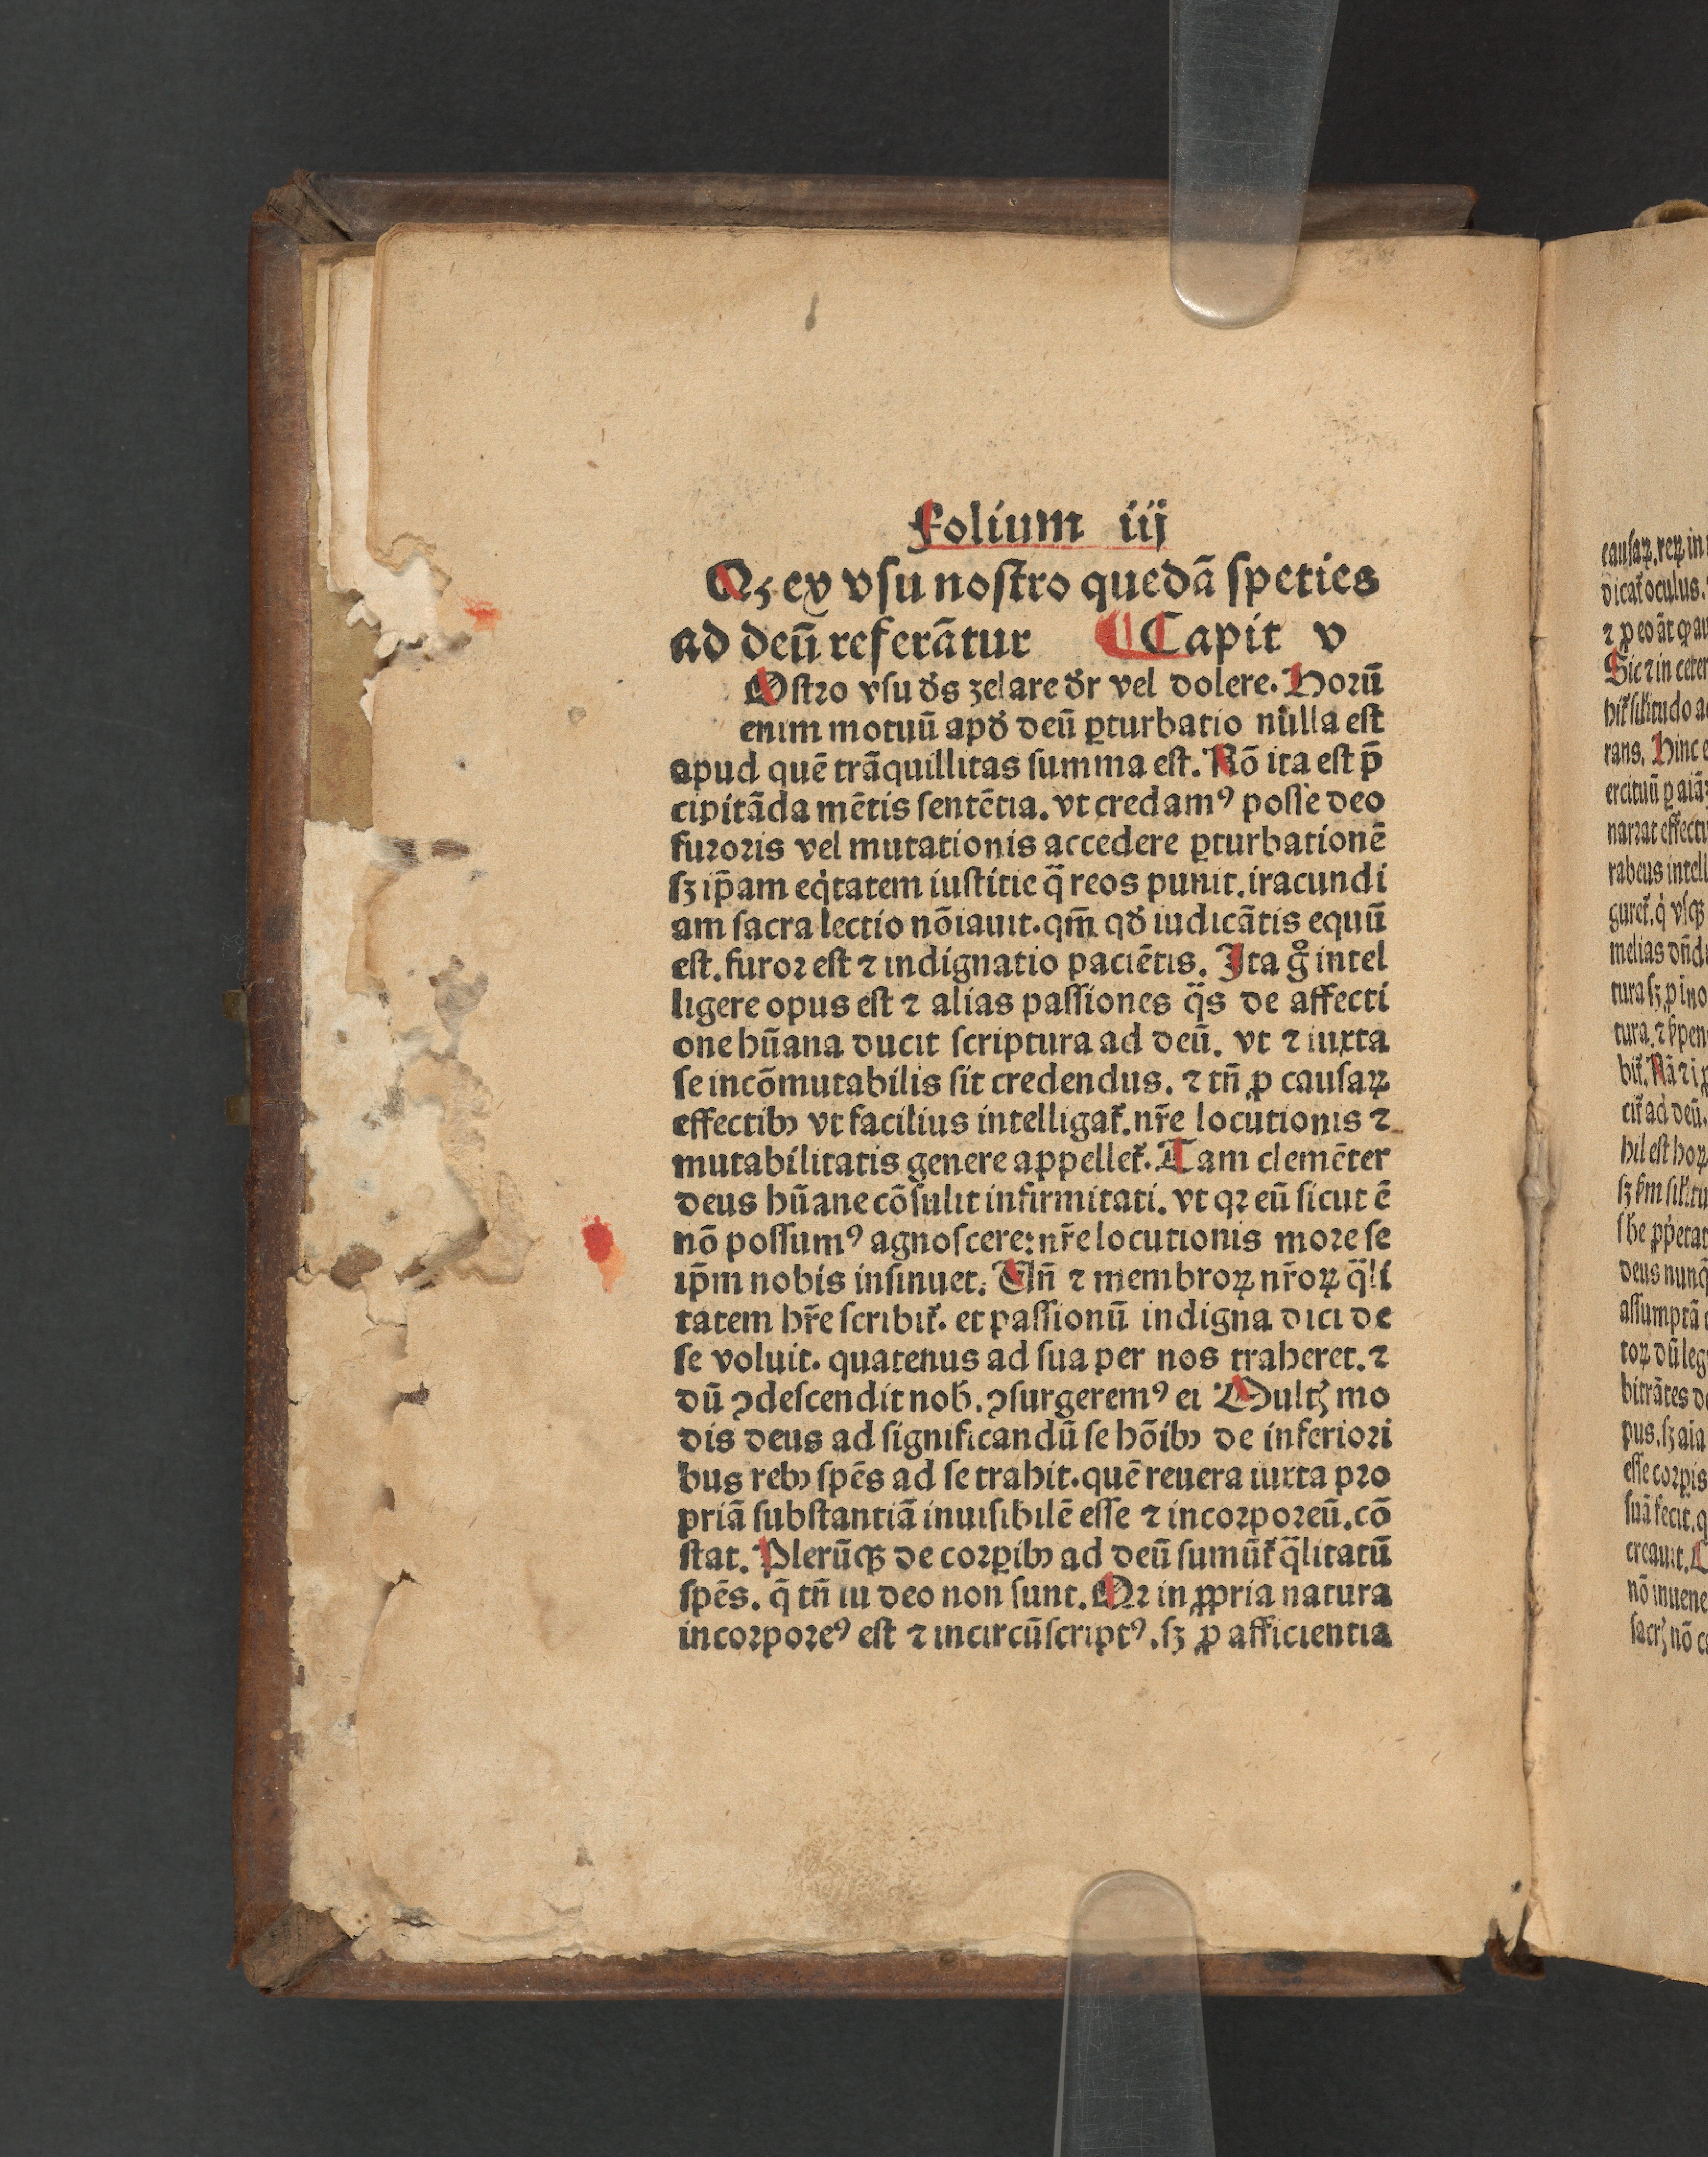 Folium iij
Qꝫ ex vsu nostro quedā speties
ad deū referātur ¶ Capit v
Ostro vsu ds̄ zelare dr̄ vel dolere. Horū
enim motuū apď deū ꝑturbatio nulla est
apud quē trāquillitas summa est. Nō ita est p̄
cipitāda mētis sentētia. vt credamꝰ posse deo
furoris vel mutationis accedere ꝑturbationē
sꝫ ip̄am eq̇tatem iustitie q̄ reos punit. iracundi
am sacra lectio nōiauit. qm̄ qď iudicātis equū
est. furor est ⁊ indignatio paciētis. Ita gͦ intel
ligere opus est ⁊ alias passiones q̈s de affecti
one hūana ducit scriptura ad deū. vt ⁊ iuxta
se incōmutabilis sit credendus. ⁊ tn̄ ꝓ causaꝝ
effectibꝰ vt facilius intelligat᷑. nr̄e locutionis ⁊
mutabilitatis genere appellet᷑. Tam clemēter
deus hūane cōsulit infirmitati. vt qꝛ eū sicut ē
nō possumꝰ agnoscere: nr̄e locutionis more se
ip̄m nobis insinuet. Vn̄ ⁊ membroꝝ nr̄oꝝ q̈li
tatem hr̄e scribit᷑. et passionū indigna dici de
se voluit. quatenus ad sua per nos traheret. ⁊
dū ↄdescendit nob̓. ↄsurgeremꝰ ei Multꝭ mo
dis deus ad significandū se hōibꝰ de inferiori
bus rebꝰ spēs ad se trahit. quē reuera iuxta pro
priā substantiā inuisibilē esse ⁊ incorporeū. cō
stat. Plerūqꝫ de corꝑibꝰ ad deū sumūt᷑ q̈litatū
spēs. q̄ tn̄ iu deo non sunt. Qꝛ in ꝓpria natura
incorporeꝰ est ⁊ incircūscriptꝰ. sꝫ ꝓ afficientia
causaꝝ. reꝝ in
dicat᷑ oculus.
rans. Hinc